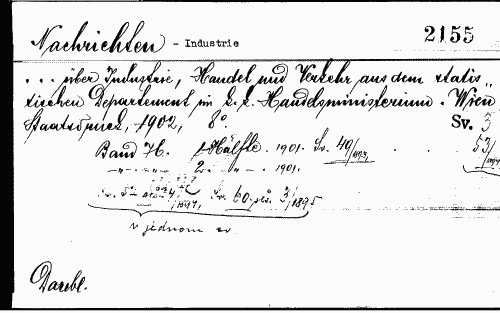 Nachrichten - Industrie
2155
... über Industrie, Handel und Verkehr aus dem statis„
tischen Departement im k. k. Handelsministerium. Wien
Staatsdruck, 1902, 8° Sv. 3
Band 76. 1 Hälfte. 1901. Sv. 49/
-„- -„- 2 -„- - 1901. 53/
Sv. 60. 3/1895
v jednom sv.
Daubl.